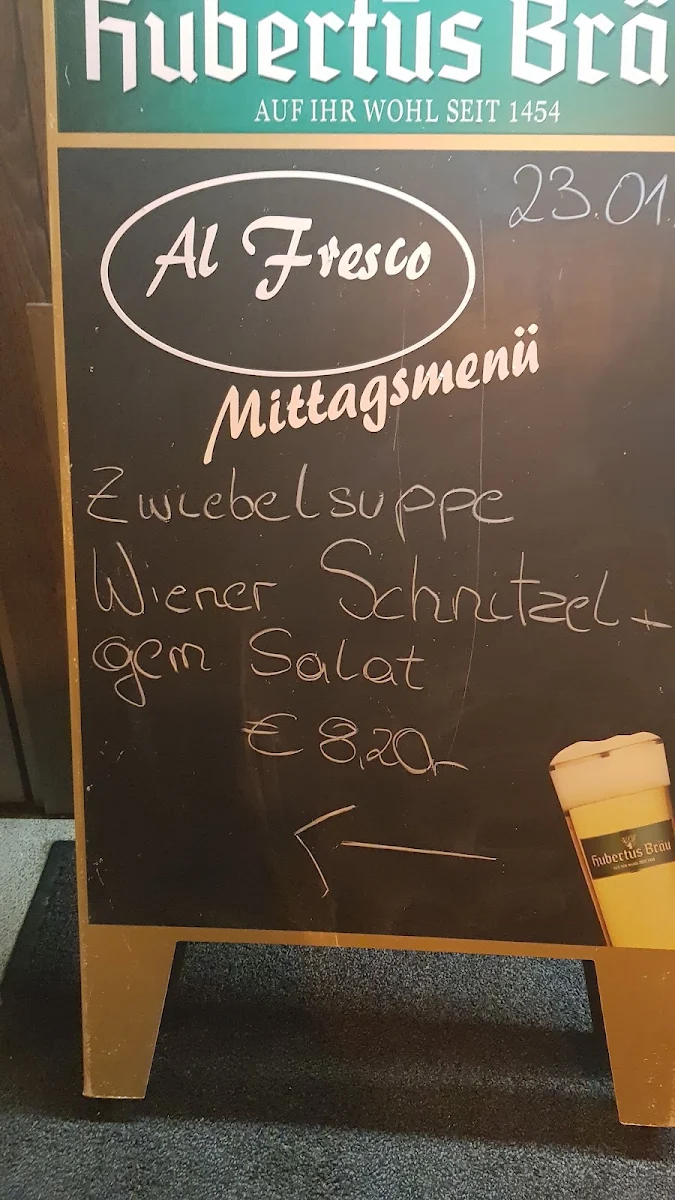 Hubertus Bräu
AUF IHR WOHL SEIT 1454
23.01.
Al Fresco
Mittagsmenü
Zwiebelsuppe
Wiener Schnitzel +
gem Salat
€ 8,20,-
Hubertus Bräu
AUF IHR WOHL SEIT 1454